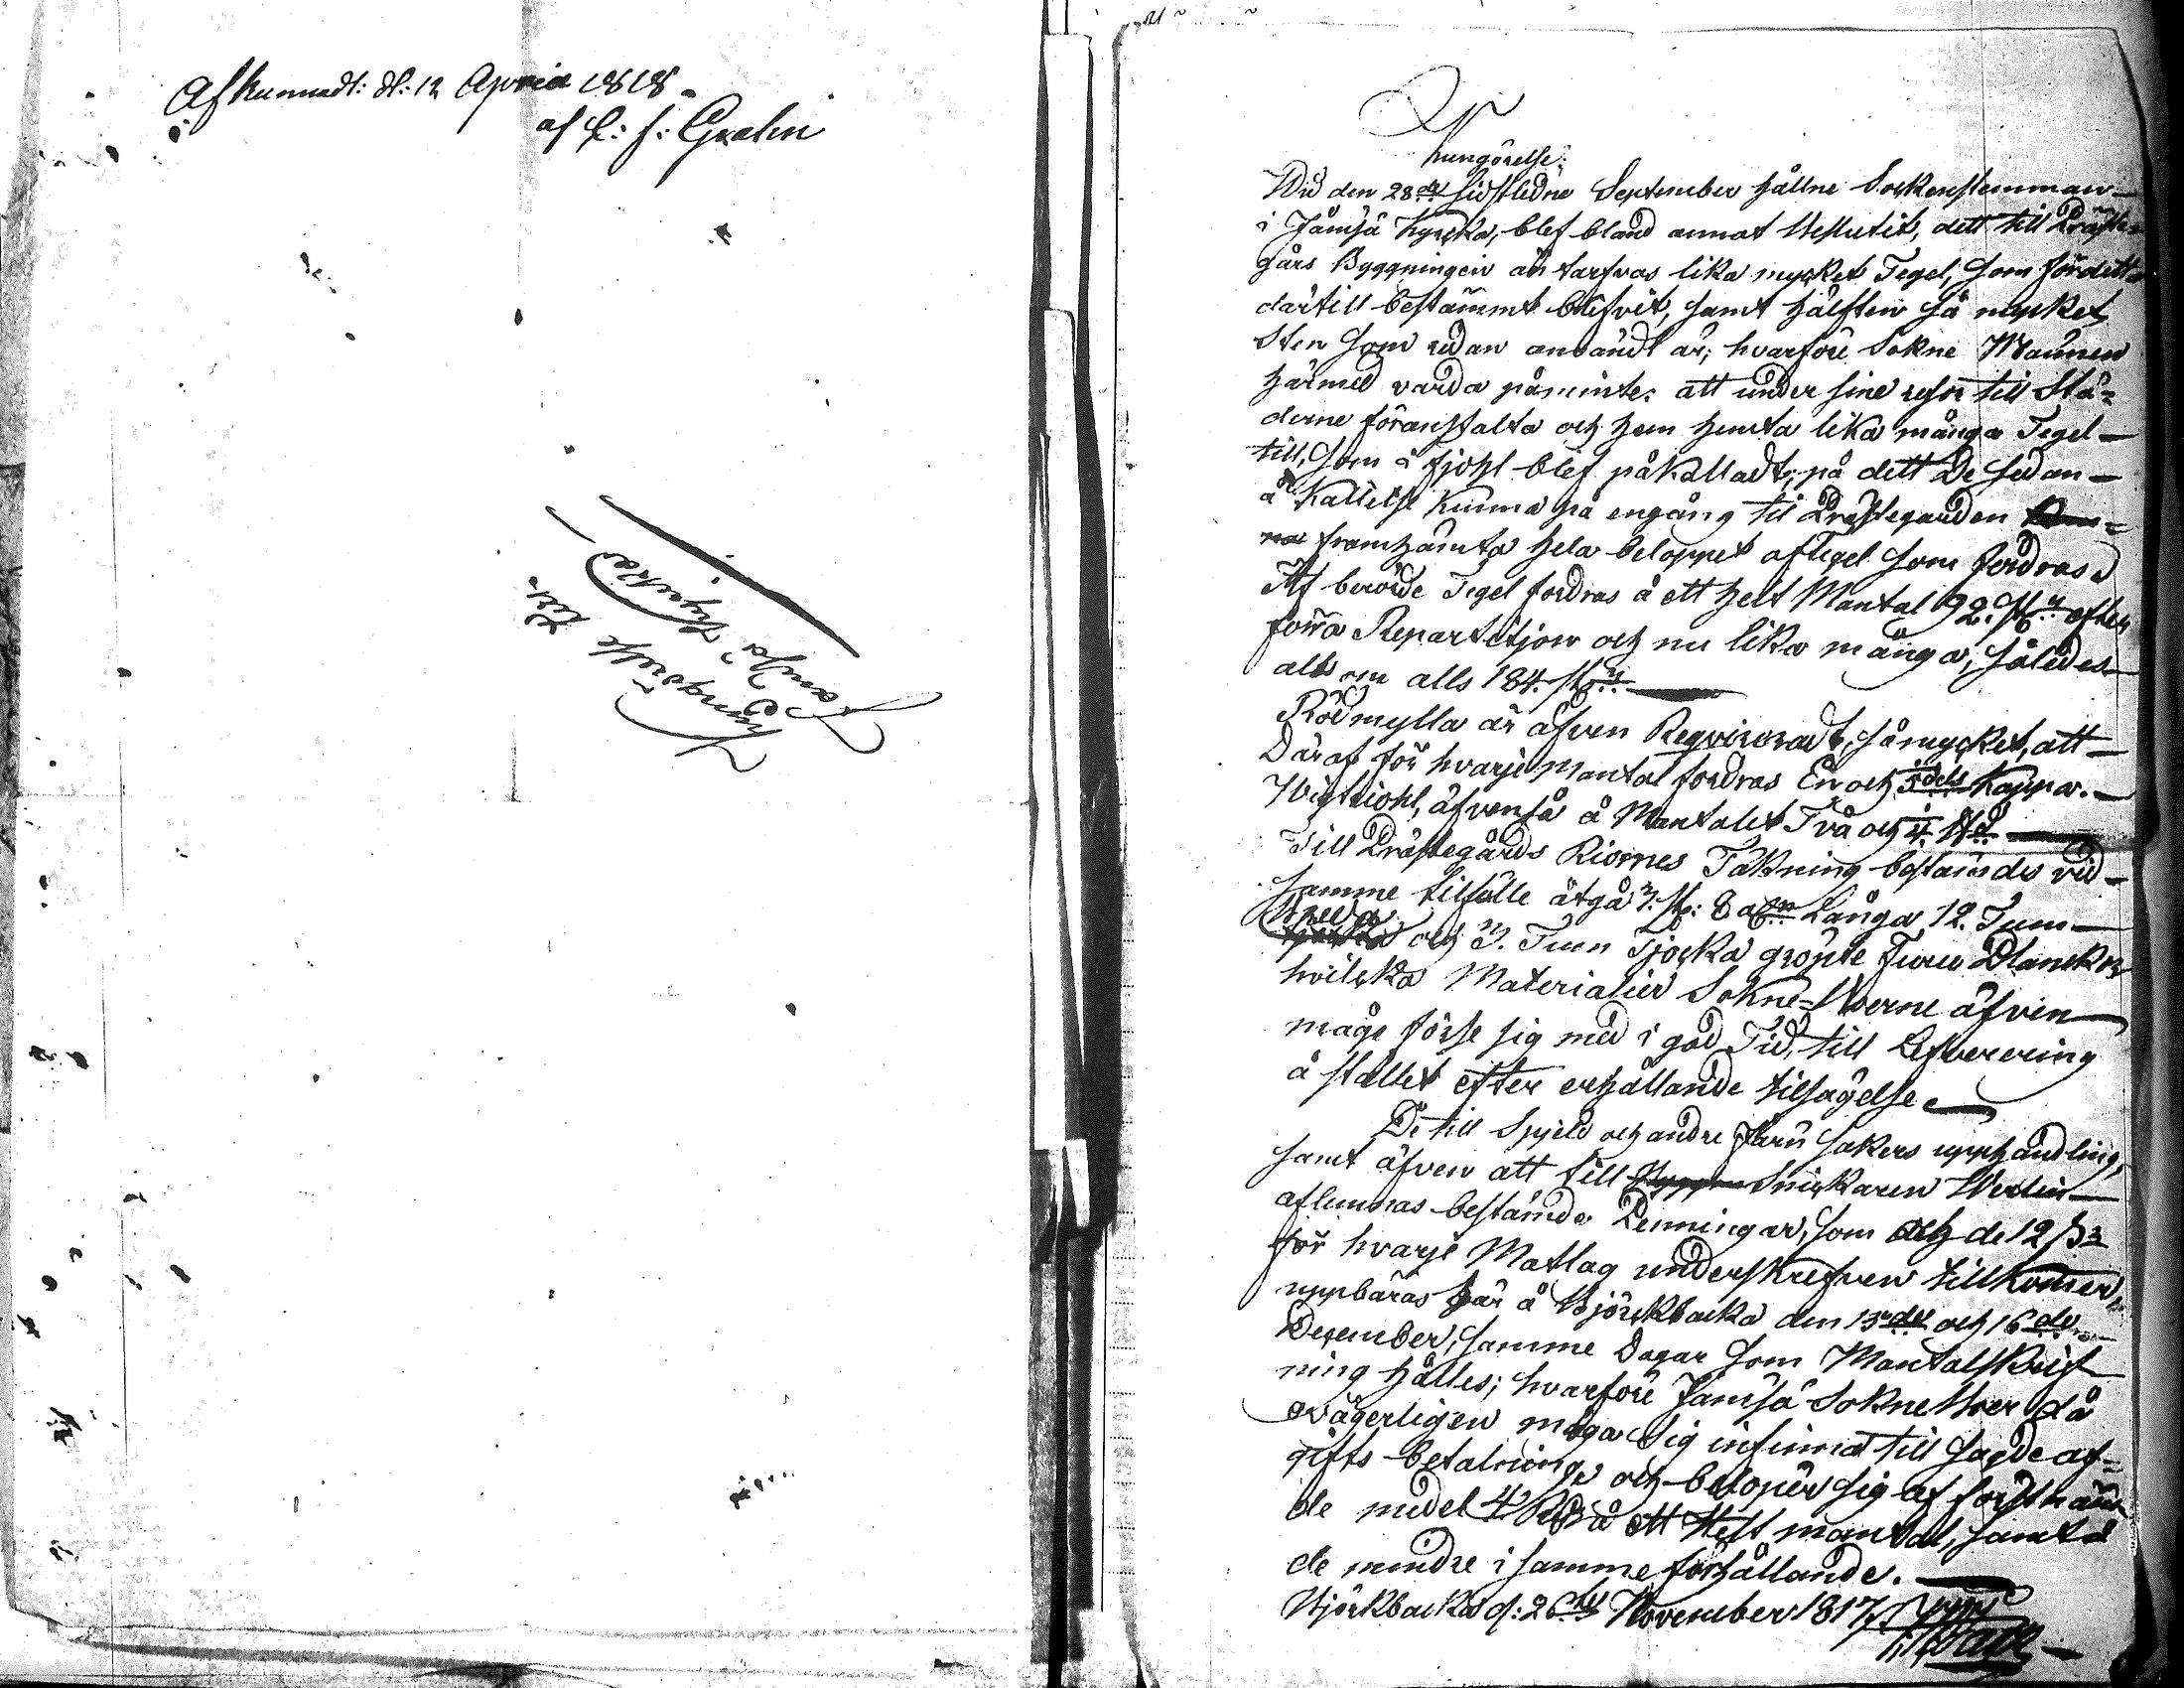 Afkunnadt: d: 12 April 1818
af C: J: Grahn
Kungörelse till
Jämsä Kyrcka
Kungörelse.
Wid den 28de sidstledne September hållne Sockenstemman
i Jämsä Kyrcka, blef bland annat beslutit, dett till Präste
gårs Byggningen än tarfvas lika mycket Tegel, som förditt
därtill bestämmt blifvit, samt hälften så mycket
Sten som redan användt är; hvarföre Sokne Männen
härmed varda påminte: att under sine resor till Stä-
derne föranstalta och hem hemta lika många Tegel
till, som i fjohl blef påkalladt; på dett De sedan
å Kallelse kunna på engång til Prästegården
framhämta hela beloppet af Tegel som fordras
Af berörde Tegel fordras å ett helt Mantal 92. St: efter
förra Repartitjon och nu lika många, således
alls om alls 184. St:
Rödmylla är äfven Reqvireradt, så mycket, att
Däraf för hvarje Mantal fordras En och 5dels Kappa.
Wigtriohl, äfvenså å Mantalet Två och
Till Prästegårds Riornes Täkning bestämdes vid
samme tilfälle åtgå 3. St: 8 al:n Långa 12. Tum
breda och 3. Tum Tjocka gröpte Furu Planckor
hvilcka Materialier Sokne-Boerne äfven
måge förse sig med i god Tid, till Lefverering
å stället efter erhållande tilsägelse.
De till Spjeld och andre Järn sakers upphandling,
samt äfven att till Snickaren Werlin
aflemnas bestämde Penningar, som och de 12 s
för hvarje Matlag underskrefven tillkommer,
uppbäras här å Björckbacka den 15de och 16de
December, samme Dagar som Mantalskrif
ning hålles; hvarföre Jämsä Sokneboer då
ovägerligen måga sig infinna till sagde af-
gifts betalning och beloper sig af förstnäm
de medel 4 Rd å ett Helt mantal, samt å
de mindre i samme förhållande.
Björkbacka d: 26de November 1817.